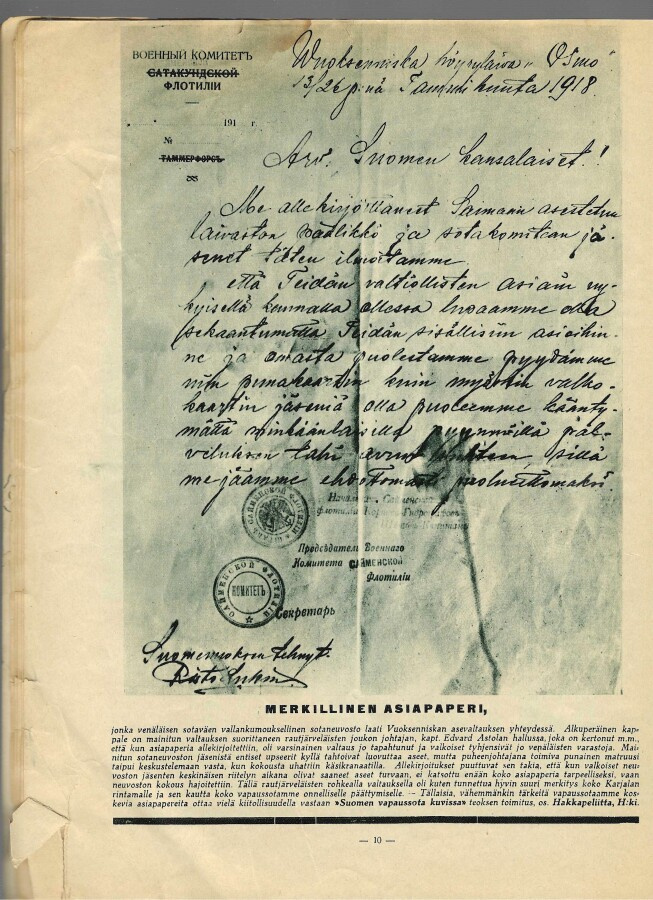 ВОЕННЫЙ КОМИТЕТЪ
САТАКУНДСКОЙ
ФЛОТИЛІИ
191 г.
№
ТАММЕРФОРСЪ
Wuoksenniska höyrylaiva „Osmo"
13/26 p:nä Tammikuuta 1918.
Arv. Suomen kansalaiset!
Me allekirjoittaneet Saimann asestetun
laivaston päälikkö ja sotakomitean jä-
senet täten ilmoitamme
että Teidän valtiollisten asiain ny-
kyisellä kannalla ollessa lupaamme olla
sekaantumatta Teidän sisällisiin asioihin-
ne ja omasta puolestamme pyydämme
niin punakaartin kuin myöskin valko-
kaartin jäseniä olla puoleemme käänty-
mättä minkäänlaisilla pyynnöillä pal-
veluksen tahi avun suhteen, sillä
me jäämme ehdottomasti puolueettomaksi
Начальн. Сайменской
флотиліи
Предсѣдатель Военнаго
Комитета САЙМЕНСКОЙ
Флотиліи
САЙМЕНСКОЙ ФЛОТИЛІИ
КОМИТЕТЪ
Секретарь
Suomennoksen tehnyt:
MERKILLINEN ASIAPAPERI,
jonka venäläisen sotaväen vallankumouksellinen sotaneuvosto laati Vuoksenniskan asevaltauksen yhteydessä. Alkuperäinen kap-
pale on mainitun valtauksen suorittaneen rautjärveläisten joukon johtajan, kapt. Edvard Astolan hallussa, joka on kertonut m.m.,
että kun asiapaperia allekirjoitettiin, oli varsinainen valtaus jo tapahtunut ja valkoiset tyhjensivät jo venäläisten varastoja. Mai-
nitun sotaneuvoston jäsenistä entiset upseerit kyllä tahtoivat luovuttaa aseet, mutta puheenjohtajana toimiva punainen matruusi
taipui keskustelemaan vasta, kun kokousta uhattiin käsikranaatilla. Allekirjoitukset puuttuvat sen takia, että kun valkoiset neu-
voston jäsenten keskinäisen riitelyn aikana olivat saaneet aseet turvaan, ei katsottu enään koko asiapaperia tarpeelliseksi, vaan
neuvoston kokous hajoitettiin. Tällä rautjärveläisten rohkealla valtauksella oli kuten tunnettua hyvin suuri merkitys koko Karjalan
rintamalle ja sen kautta koko vapaussotamme onnelliselle päättymiselle. — Tällaisia, vähemmänkin tärkeitä vapaussotaamme kos-
kevia asiapapereita ottaa vielä kiitollisuudella vastaan »Suomen vapaussota kuvissa» teoksen toimitus, os. Hakkapeliitta, H:ki.
— 10 —